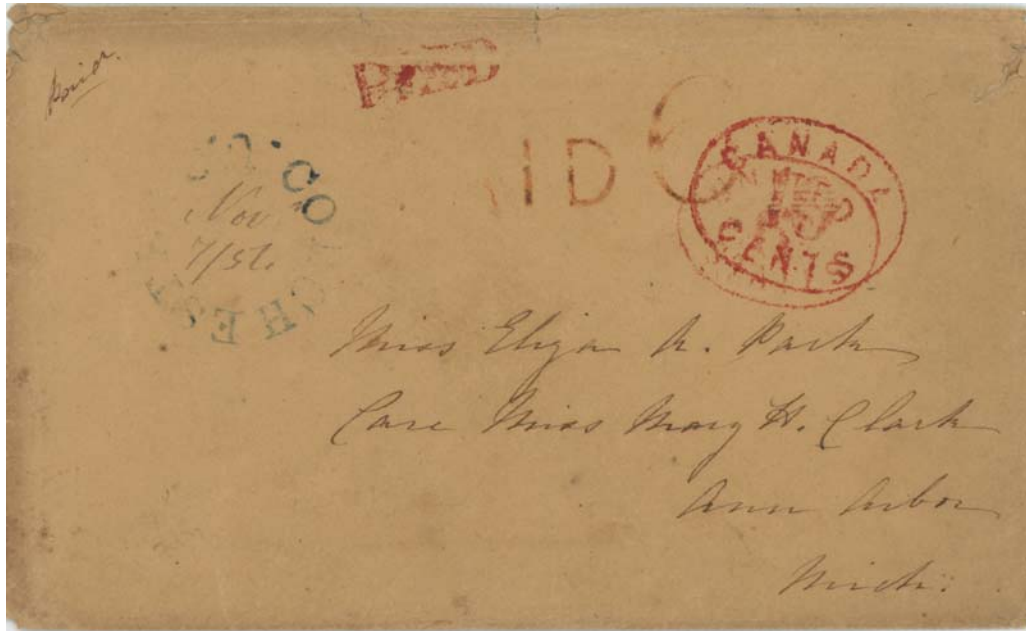 Paid.
PAID
PAID 6
CANADA
10
CENTS
CO. CO
CHEST
Nov
7/56.
Miss Eliza A. Park
Care Miss Mary H. Clark
Ann Arbor
Mich.